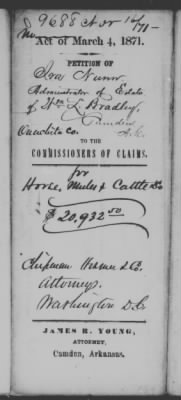 No 9688 Act
Act of March 4, 1871.
PETITION OF
Ira Nunn
Administrator of Estate
of Wm L. Bradley
Camden
Ouachita Co. Ark
TO THE
COMMISSIONERS OF CLAIMS.
for
Horse, Mules & Cattle &c
$ 20,932.50
Chipman Hosmer & Co.
Attorneys
Washington D.C.
JAMES R. YOUNG,
ATTORNEY,
Camden, Arkansas.